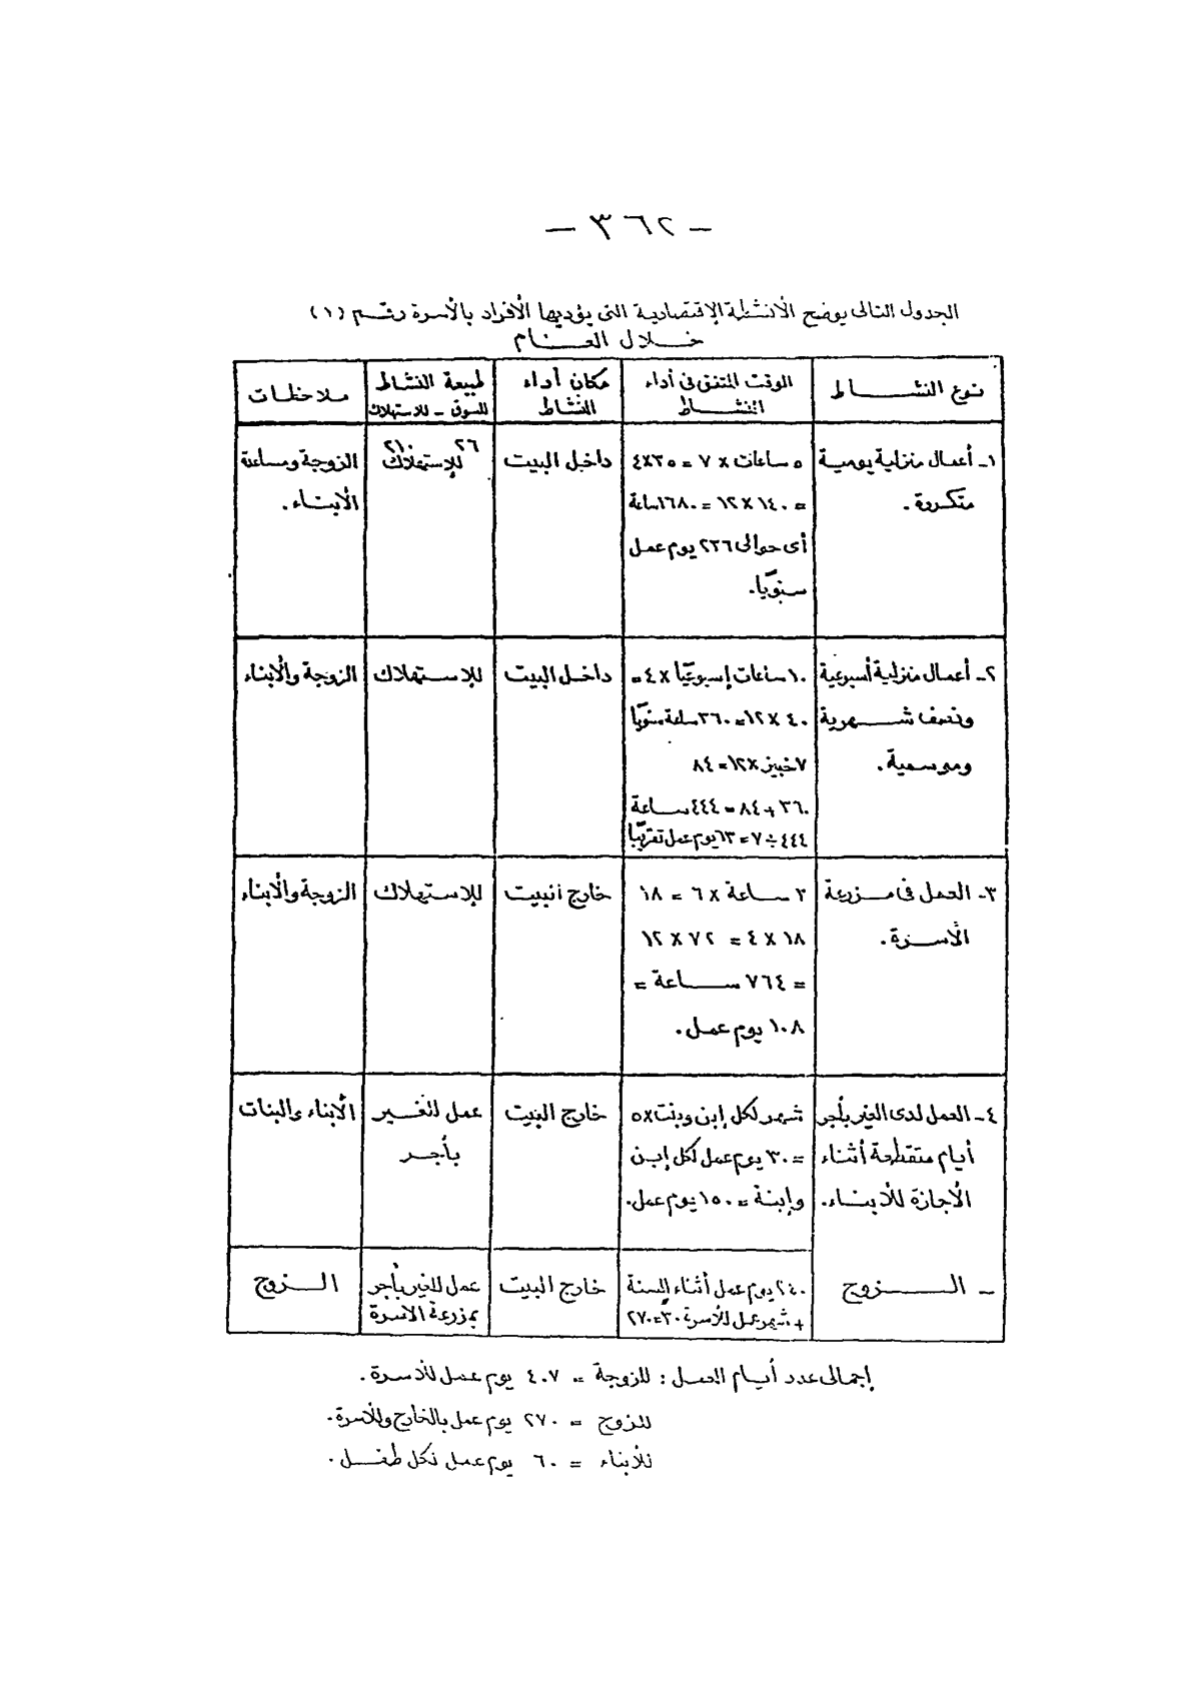 - ٣٦٢ -
الجدول التالى يوضح الأنشطة الإقتصادية التى يؤديها الأفراد بالأسرة رقم (١)
خلال العام
نوع النشاط
الوقت المتفق فى أداء
النشاط
مكان أداء
النشاط
طبيعة النشاط
للسوق - للاستهلاك
ملاحظات
١- أعمال منزلية يومية
متكررة.
٥ ساعات x ٧ = ٣٥x٤
= ١٤٠ x ١٢ = ١٦٨٠ ساعة
أى حوالى ٢٣٦ يوم عمل
سنويًا.
داخل البيت
للإستهلاك
الزوجة ومساعدة
الأبناء.
٢- أعمال منزلية أسبوعية
ونصف شهرية
وموسمية.
١٠ ساعات إسبوعيًا x ٤ =
٤٠ x ١٢ = ٣٦٠ ساعة سنويًا
٧ خبيز x ١٢ = ٨٤
٣٦٠ + ٨٤ = ٤٤٤ ساعة
٤٤٤ ÷ ٧ = ٦٣ يوم عمل تقريبًا
داخل البيت
للإستهلاك
الزوجة والأبناء
٣- العمل فى مزرعة
الأسرة.
٣ ساعة x ٦ = ١٨
١٨ x ٤ = ٧٢ x ١٢
= ٧٦٤ ساعة =
١٠٨ يوم عمل.
خارج البيت
للإستهلاك
الزوجة والأبناء
٤- العمل لدى الغير بأجر
أيام متقطعة أثناء
الأجازة للأبناء.
شهر لكل إبن وبنت x ٥
= ٣٠ يوم عمل لكل إبن
وإبنة = ١٥٠ يوم عمل.
خارج البيت
عمل للغير
بأجر
الأبناء والبنات
- الزوج
٢٤٠ يوم عمل أثناء السنة
+ شهر عمل للأسرة ٣٠ = ٢٧٠
خارج البيت
عمل للغير بأجر
بمزرعة الاسرة
الزوج
إجمالى عدد أيام العمل : للزوجة = ٤٠٧ يوم عمل للأسرة.
للزوج = ٢٧٠ يوم عمل بالخارج وللأسرة.
للأبناء = ٦٠ يوم عمل لكل طفل.